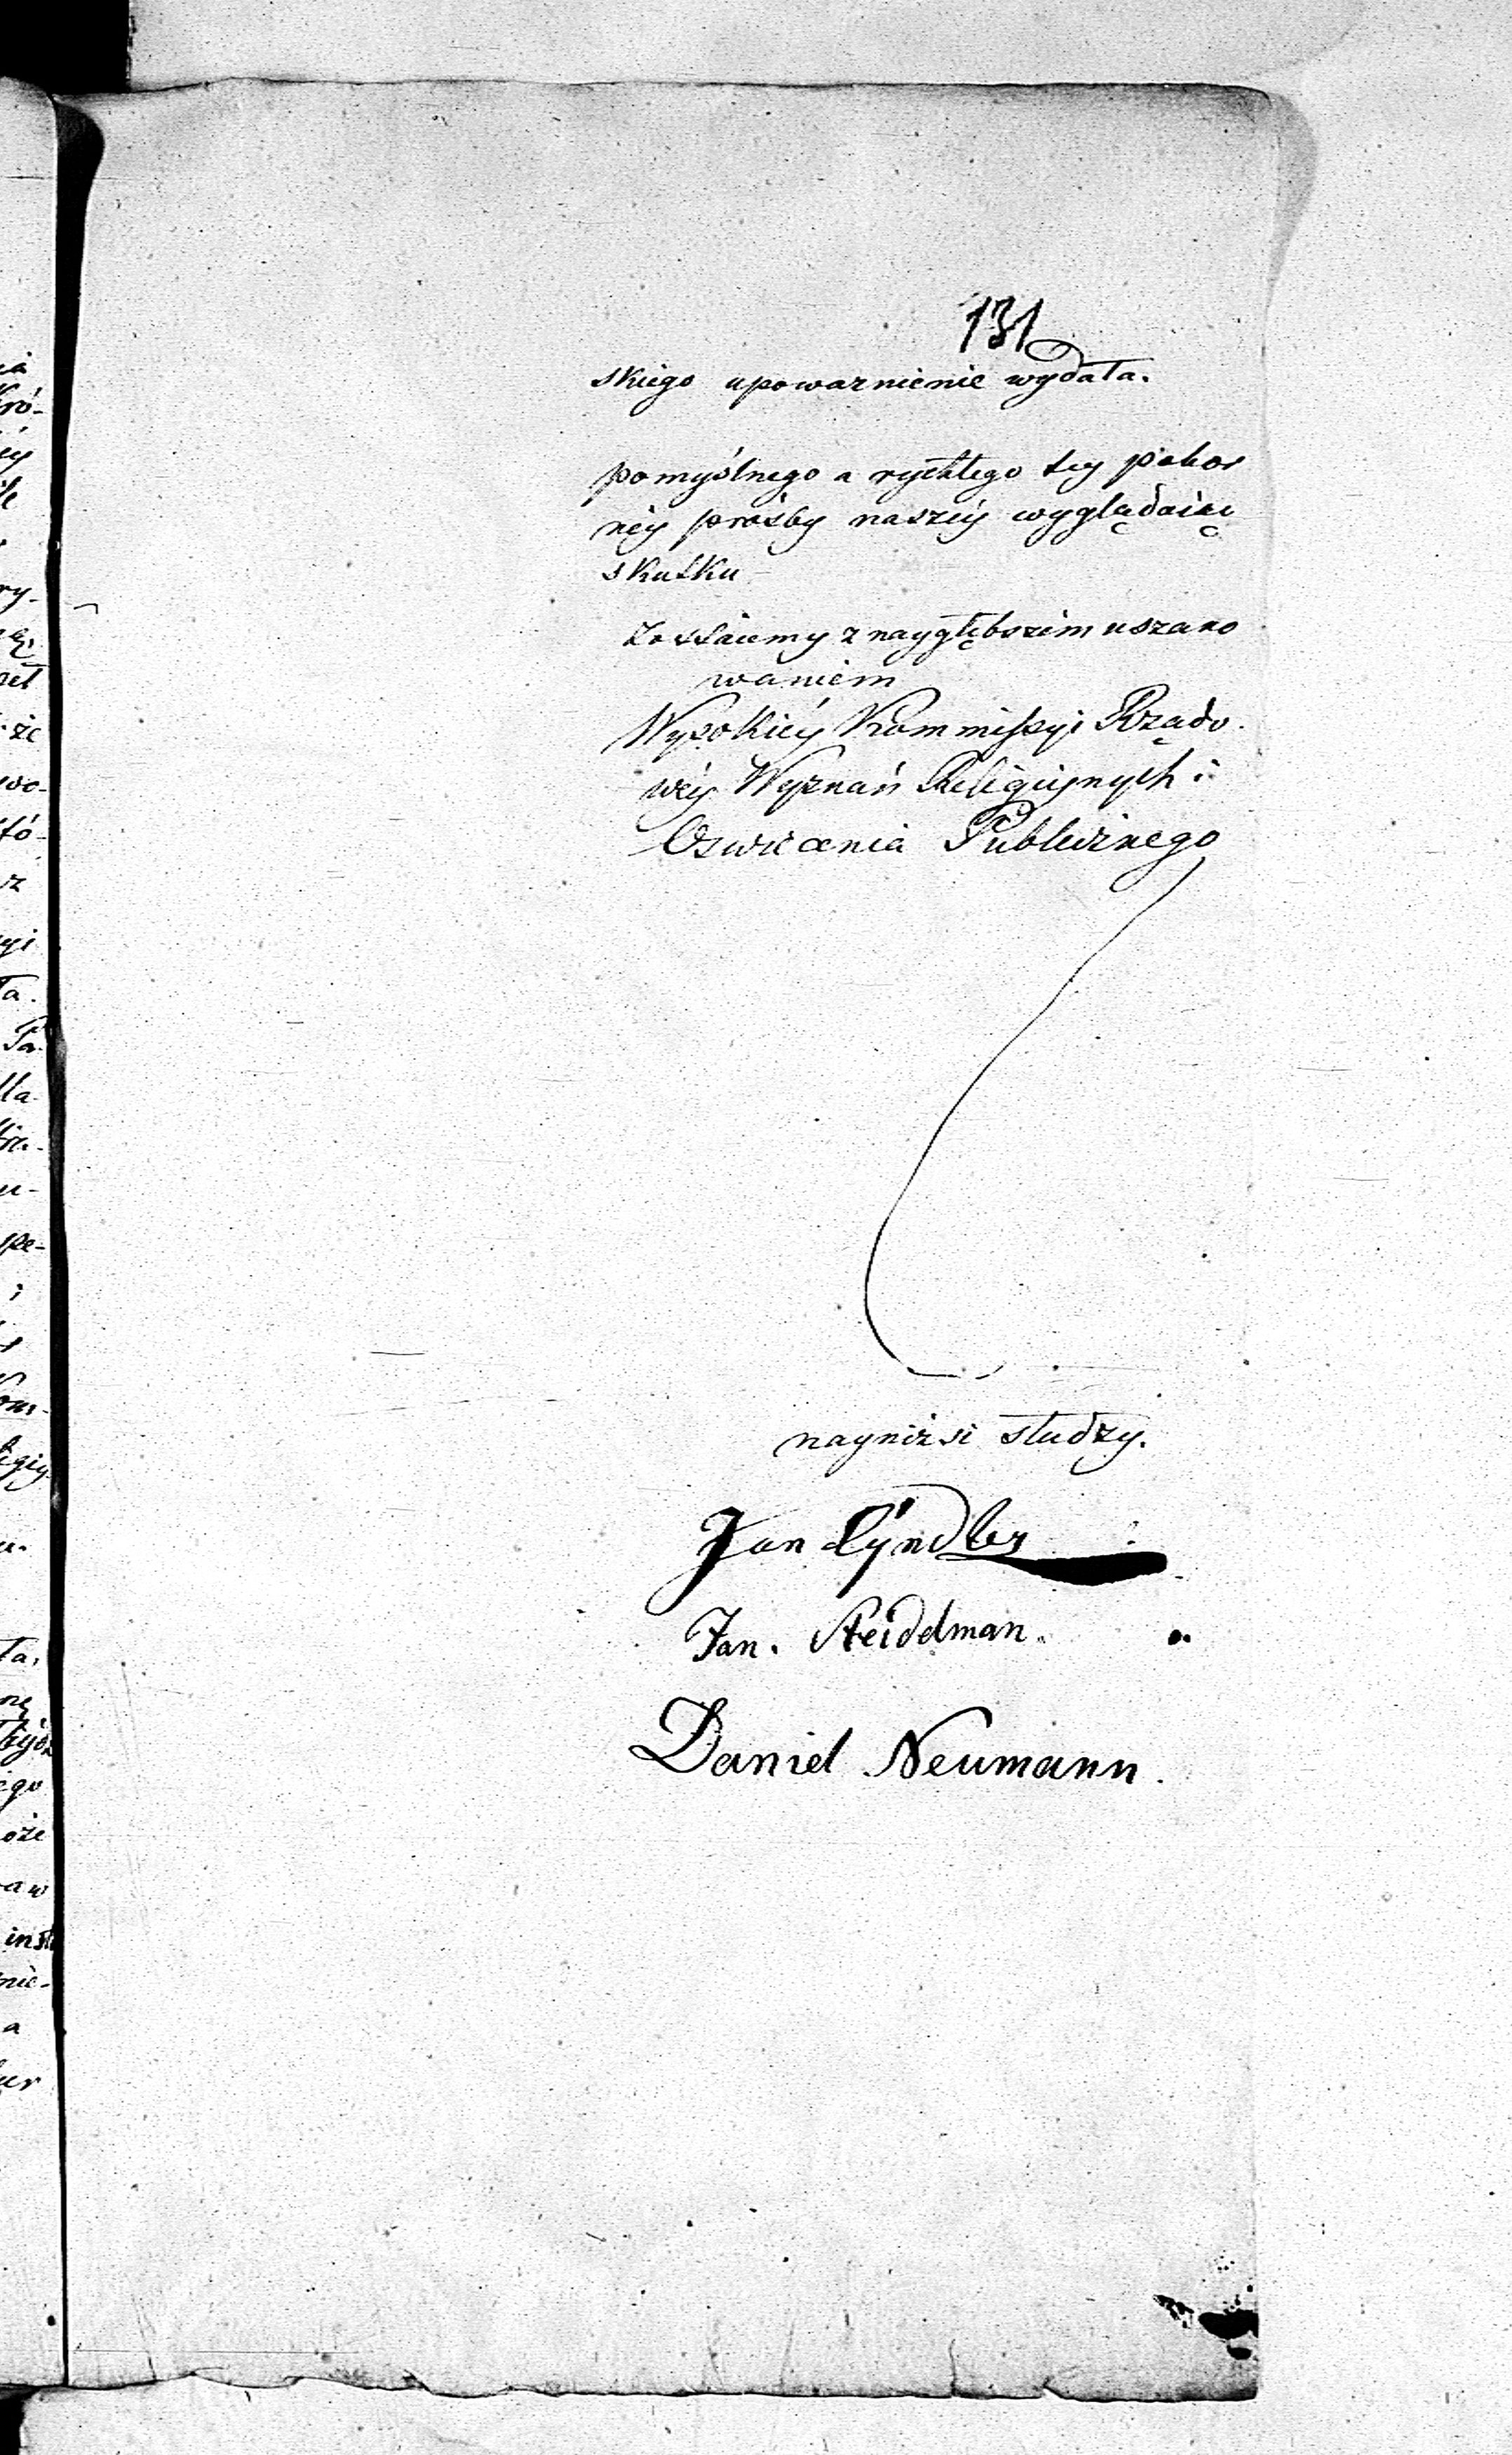 131
skiego upoważnienie wydała.
pomyślnego a rychłego tey pokor
néy prośby naszéy wyglądaiąc
skutku
Zostaiemy z naygłębszim uszano
waniem
Wysokiéy Kommissyi Rządo.
wéy Wyznań Religiynych i
Oswiecenia Publicznego
nayniżsi słudzy.
Jan Lýndler
Jan. Reidelman.
Daniel Neumann.